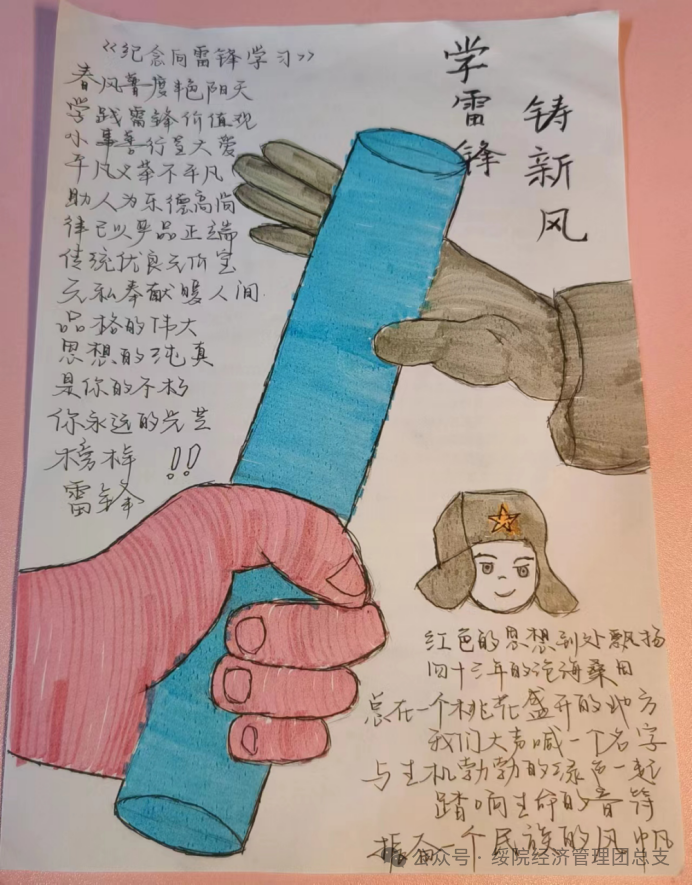 《纪念向雷锋学习》
春风普度艳阳天
学践雷锋价值观
小事善行呈大爱
平凡义举不平凡
助人为乐德高尚
律己以严品正端
传统优良无价宝
无私奉献暖人间
品格的伟大
思想的纯真
是你的不朽
你永远的光芒
榜样!!
雷锋
学雷锋
铸新风
红色的思想到处飘扬
四十三年的沧海桑田
总在一个桃花盛开的地方
我们大声喊一个名字
与生机勃勃的绿色一起
踏响生命的音符
一个民族的风帆
公众号·绥院经济管理团总支